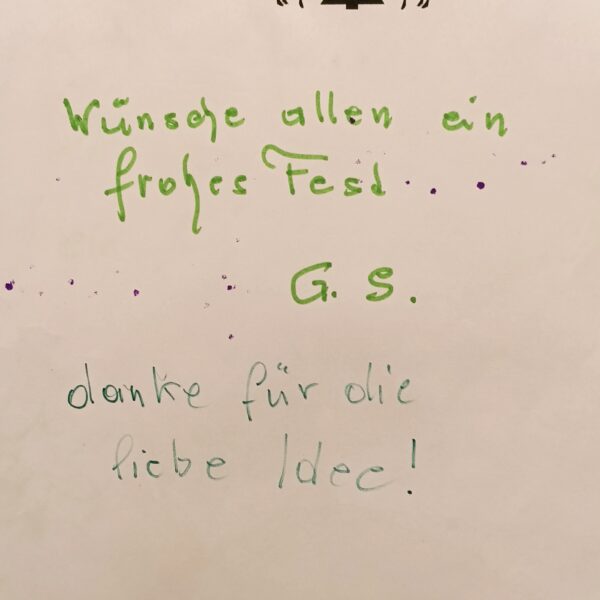 Wünsche allen ein
frohes Fest...
G. S.
danke für die
liebe Idee!